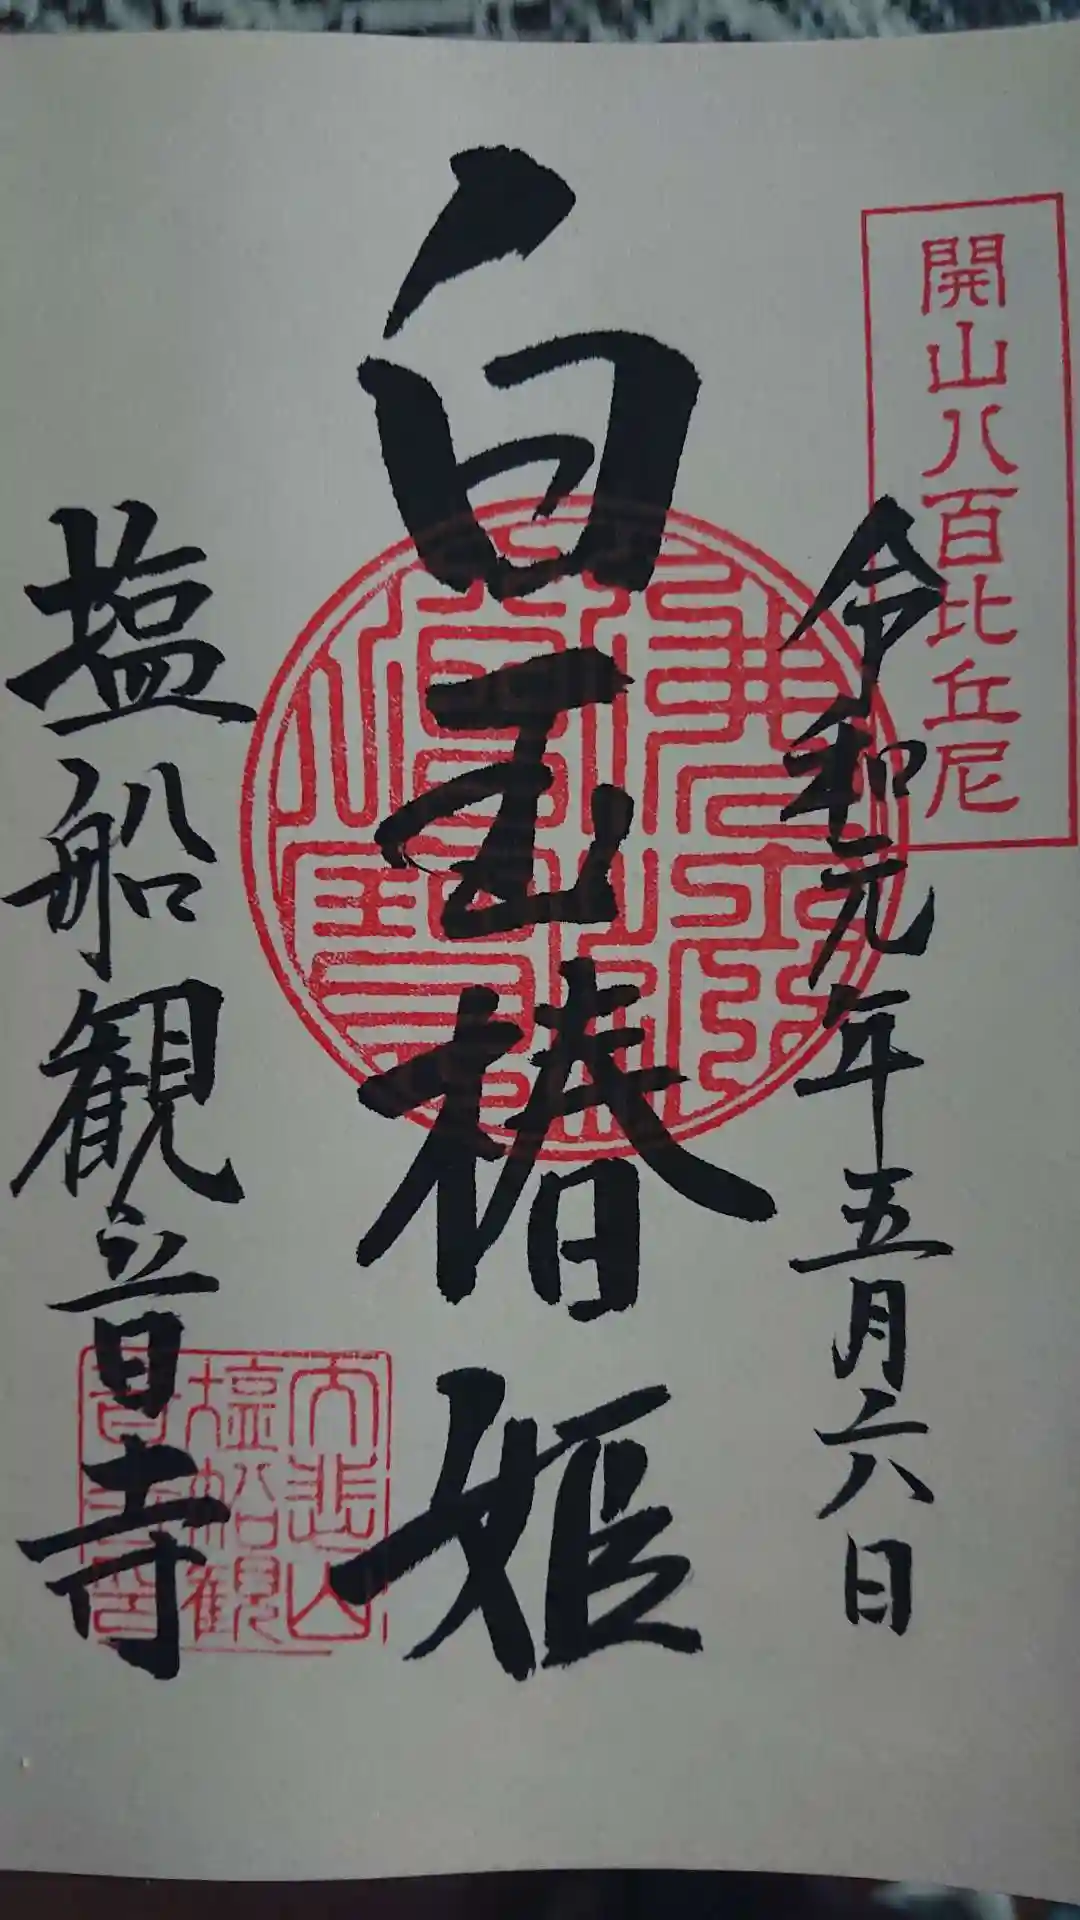 開山八百比丘尼
令和元年五月六日
白玉椿姫
塩船観音寺
大悲山
塩船観
音寺印